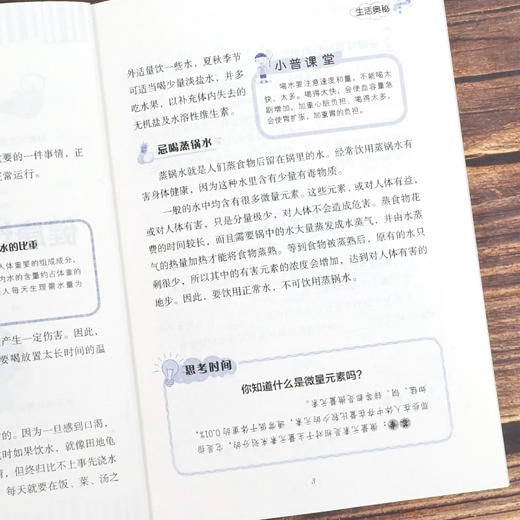 要的一件事情，正
常运行。
水的比重
人体重要的组成成分，
为水的含量约占体重的
人每天生理需水量为
产生一定伤害。因此，
要喝放置太长时间的温
的。因为一旦感到口渴，
时如果饮水，就像田地龟
，但终归比不上事先浇水
每天就要在饭、菜、汤之
生活奥秘
外适量饮一些水，夏秋季节
可适当喝少量淡盐水，并多
吃水果，以补充体内失去的
无机盐及水溶性维生素。
小普课堂
喝水要注意速度和量，不能喝太
快、太多。喝得太快，会使血容量急
剧增加，加重心脏负担，喝得太多，
会使胃扩张，加重胃的负担。
忌喝蒸锅水
蒸锅水就是人们蒸食物后留在锅里的水。经常饮用蒸锅水有
害身体健康，因为这种水里含有少量有毒物质。
一般的水中均含有很多微量元素。这些元素，或对人体有益，
或对人体有害，只是分量极少，对人体不会造成危害。蒸食物花
费的时间较长，而且需要锅中的水大量蒸发成水蒸气，并由水蒸
气的热量加热才能将食物蒸熟。等到食物被蒸熟后，原有的水只
剩很少，所以其中的有害元素的浓度会增加，达到对人体有害的
地步。因此，要饮用正常水，不可饮用蒸锅水。
思考时间
你知道什么是微量元素吗？
答案：微量元素是相对于主量元素来划分的，它是指
那些在人体中存在数量比较少的元素，通常，低于体重的0.01%，
如锰、铜、锌等都是微量元素。
3